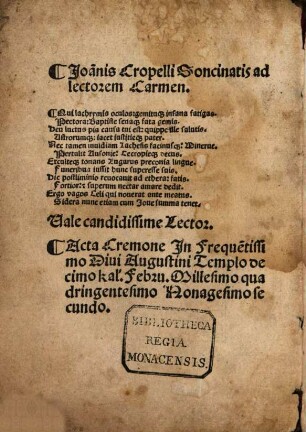 ¶ Joānis Cropelli Soncinatis ad
lectorem Carmen.
¶ Qui lachrymis oculos: gemituq; insana fatigas.
Pectora: Baptiste senaq; fata gemis.
Heu luctus pia causa tui est: quippe ille salutis.
Astrorumq; iacet iustitieq; pater.
Nec tamen inuidiam Lachesis facinusq; Minerue.
Pertulit Ausonie: Cecropieq; decus.
Erculteq; tonans Augurus preconia lingue.
Funeribus iussit hunc superesse suis.
Hic postliminio reuocauit ad ethera: fatis.
Fortior: t superum nectar amare dedit.
Ergo vagos Celi qui nouerat ante meatus.
Sidera nunc etiam cum Ioue summa tenet.
Uale candidissime Lector.
¶ Acta Cremone In Frequētissi
mo Diui Augustini Templo de
cimo kal. Febru. Millesimo qua
dringentesimo Nonagesimo se
cundo.
BIBLIOTHECA
REGIA
MONACENSIS.